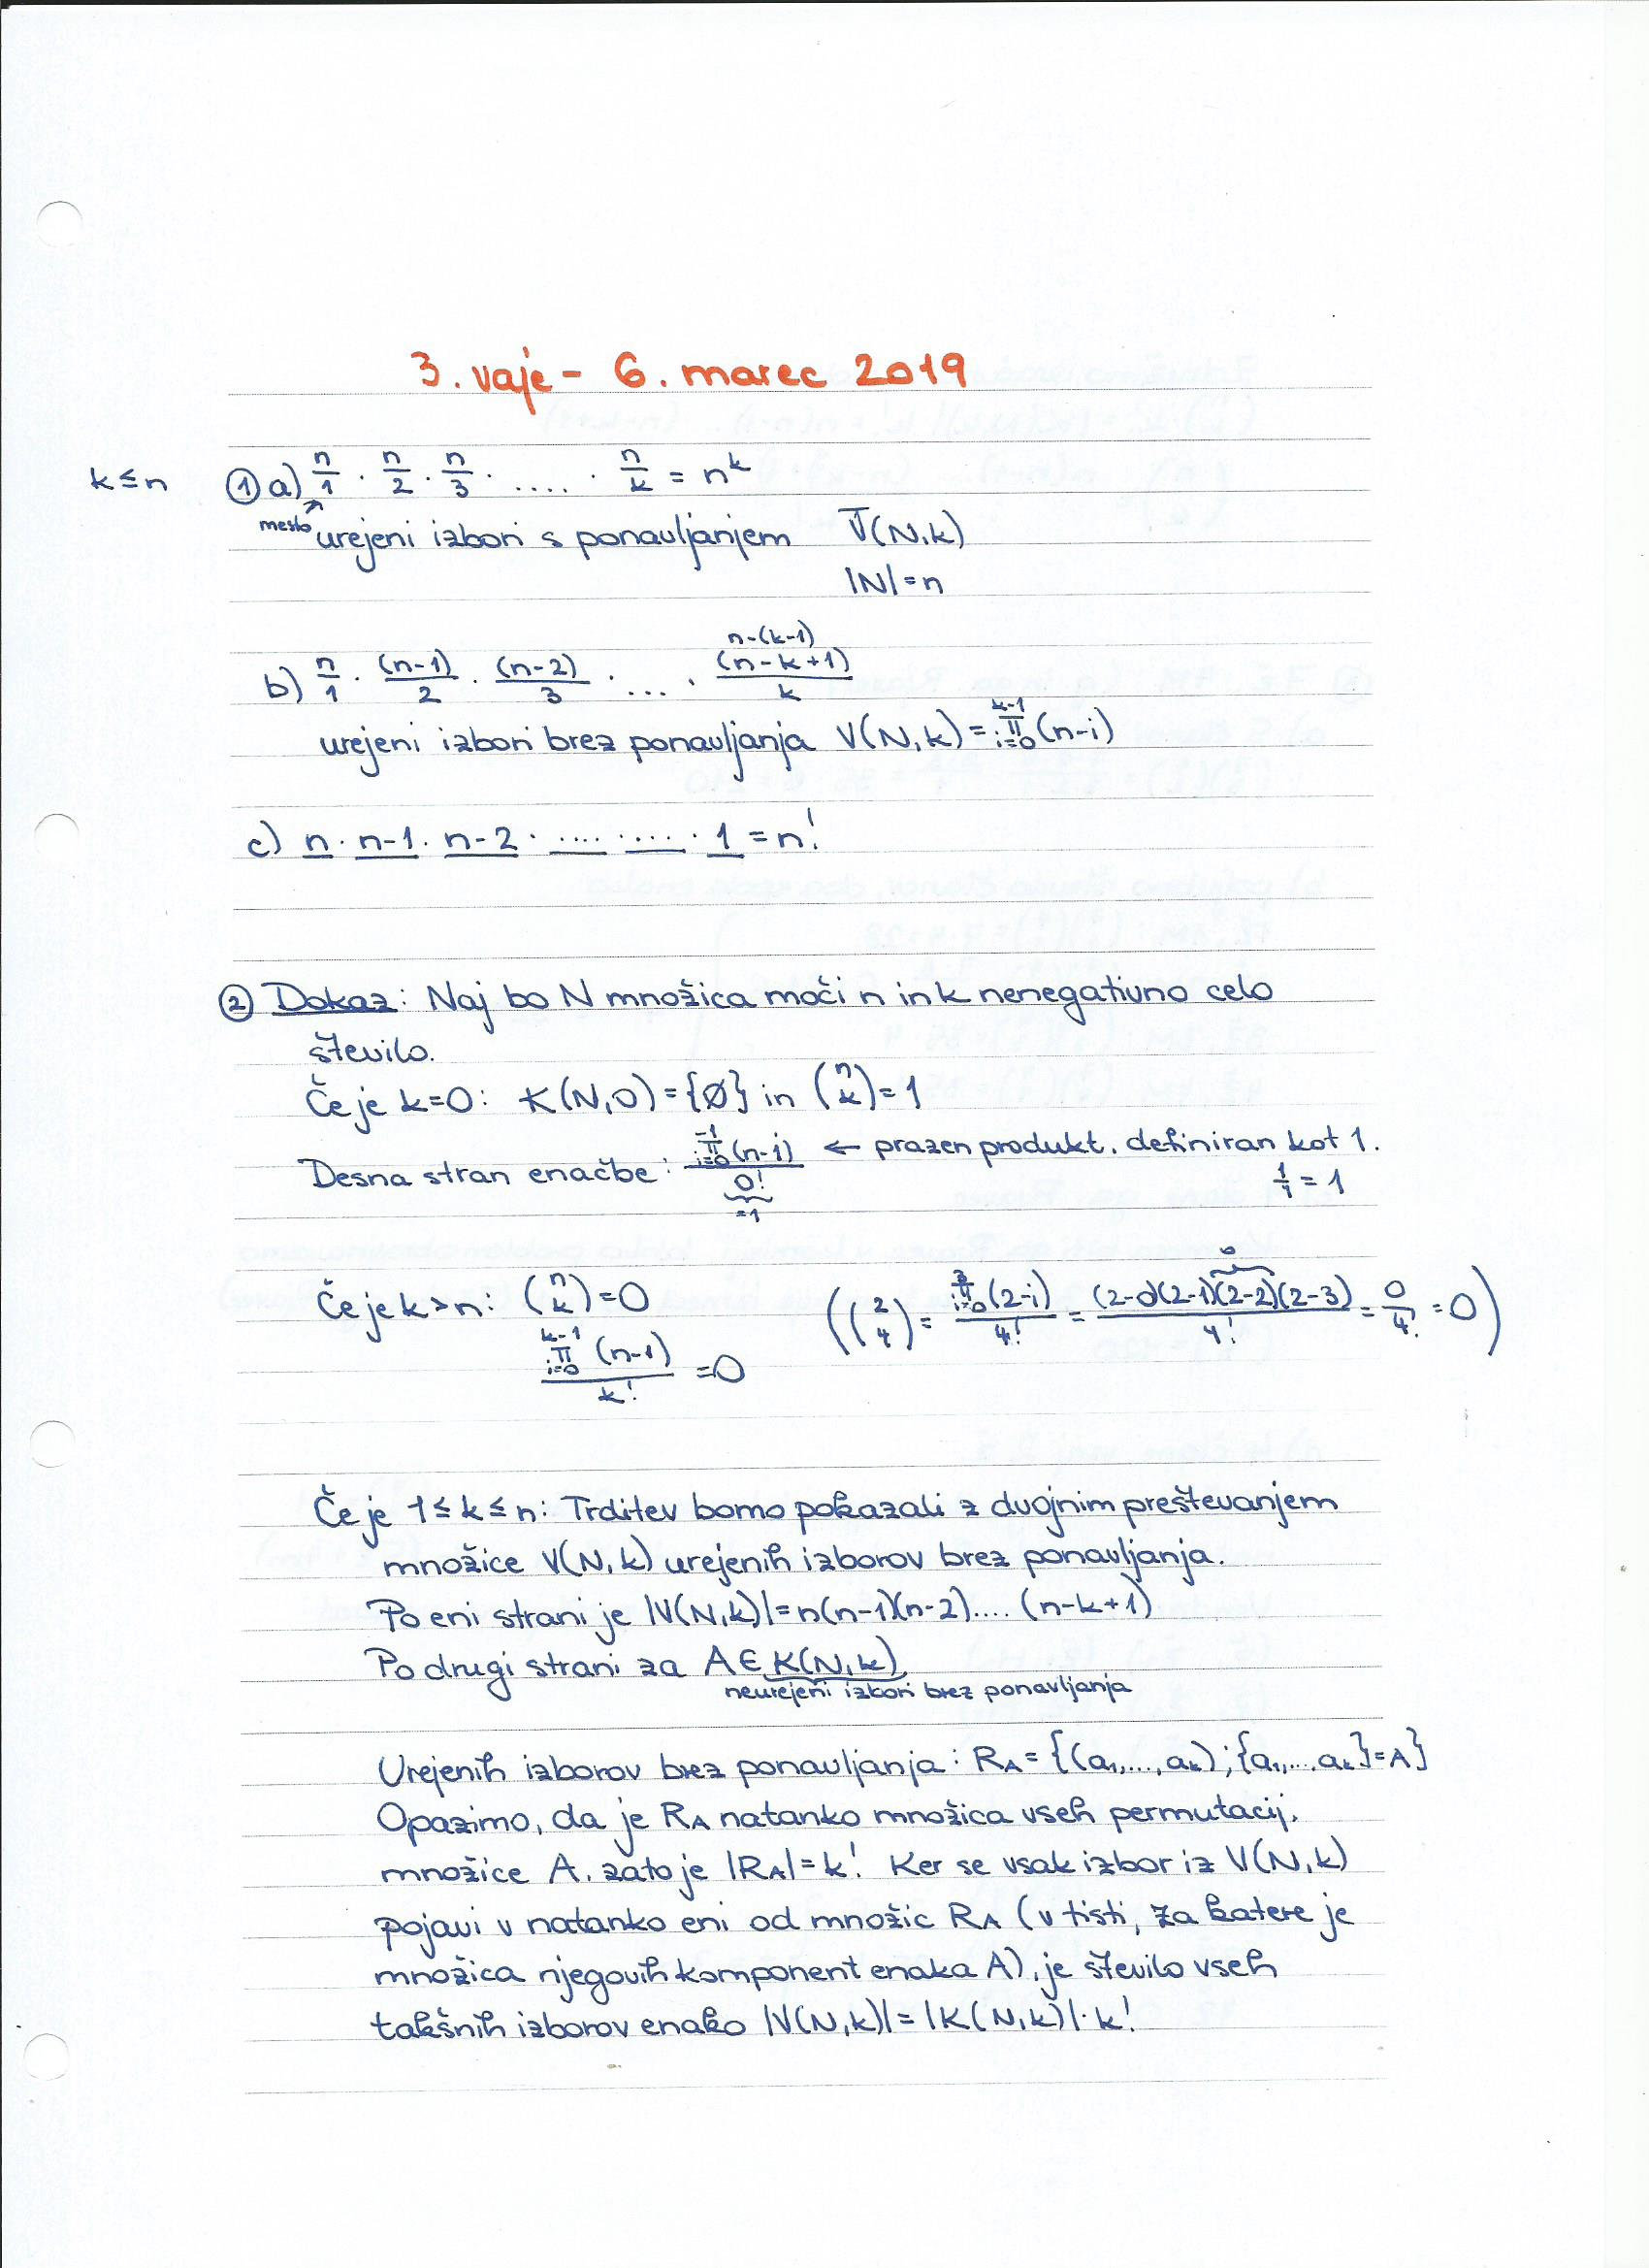 3. vaje - 6. marec 2019
k ≤ n ① a) n/1 · n/2 · n/3 · ..... · n/k = n^k
mesto ↗ urejeni izbori s ponavljanjem V̅(N,k)
|N| = n
n-(k-1)
b) n/1 · (n-1)/2 · (n-2)/3 · ... · (n-k+1)/k
urejeni izbori brez ponavljanja V(N,k) = ∏_{i=0}^{k-1} (n-i)
c) n · n-1 · n-2 · .... ..... · 1 = n!
② Dokaz: Naj bo N množica moči n in k nenegativno celo
število.
Če je k=0: K(N,0) = {∅} in (n k) = 1
Desna stran enačbe: ∏_{i=0}^{-1} (n-i) / 0! ← prazen produkt, definiran kot 1.
=1 1/1 = 1
Če je k>n: (n k) = 0 ((2 4) = ∏_{i=0}^{3} (2-i) / 4! = (2-0)(2-1)(2-2)(2-3) / 4! = 0/4! = 0)
∏_{i=0}^{k-1} (n-1) / k! = 0
Če je 1 ≤ k ≤ n: Trditev bomo pokazali z dvojnim preštevanjem
množice V(N,k) urejenih izborov brez ponavljanja.
Po eni strani je |V(N,k)| = n(n-1)(n-2).... (n-k+1)
Po drugi strani za A ∈ K(N,k)
neurejeni izbori brez ponavljanja
Urejenih izborov brez ponavljanja: R_A = {(a₁,...,a_k); {a₁,...,a_k} = A}
Opazimo, da je R_A natanko množica vseh permutacij.
množice A, zato je |R_A| = k! Ker se vsak izbor iz V(N,k)
pojavi v natanko eni od množic R_A (v tisti, za katere je
množica njegovih komponent enaka A), je število vseh
takšnih izborov enako |V(N,k)| = |K(N,k)| · k!